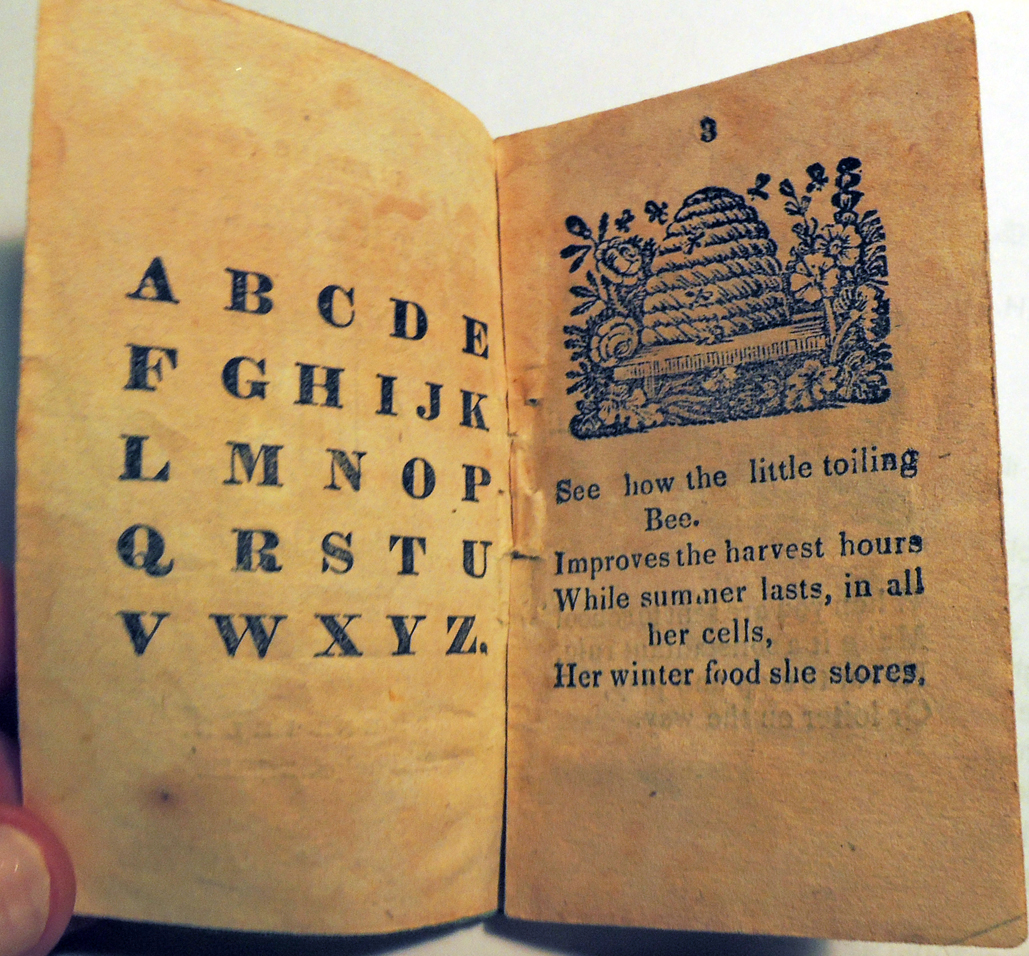 A B C D E
F G H I J K
L M N O P
Q R S T U
V W X Y Z.
3
See how the little toiling
Bee.
Improves the harvest hours
While summer lasts, in all
her cells,
Her winter food she stores.